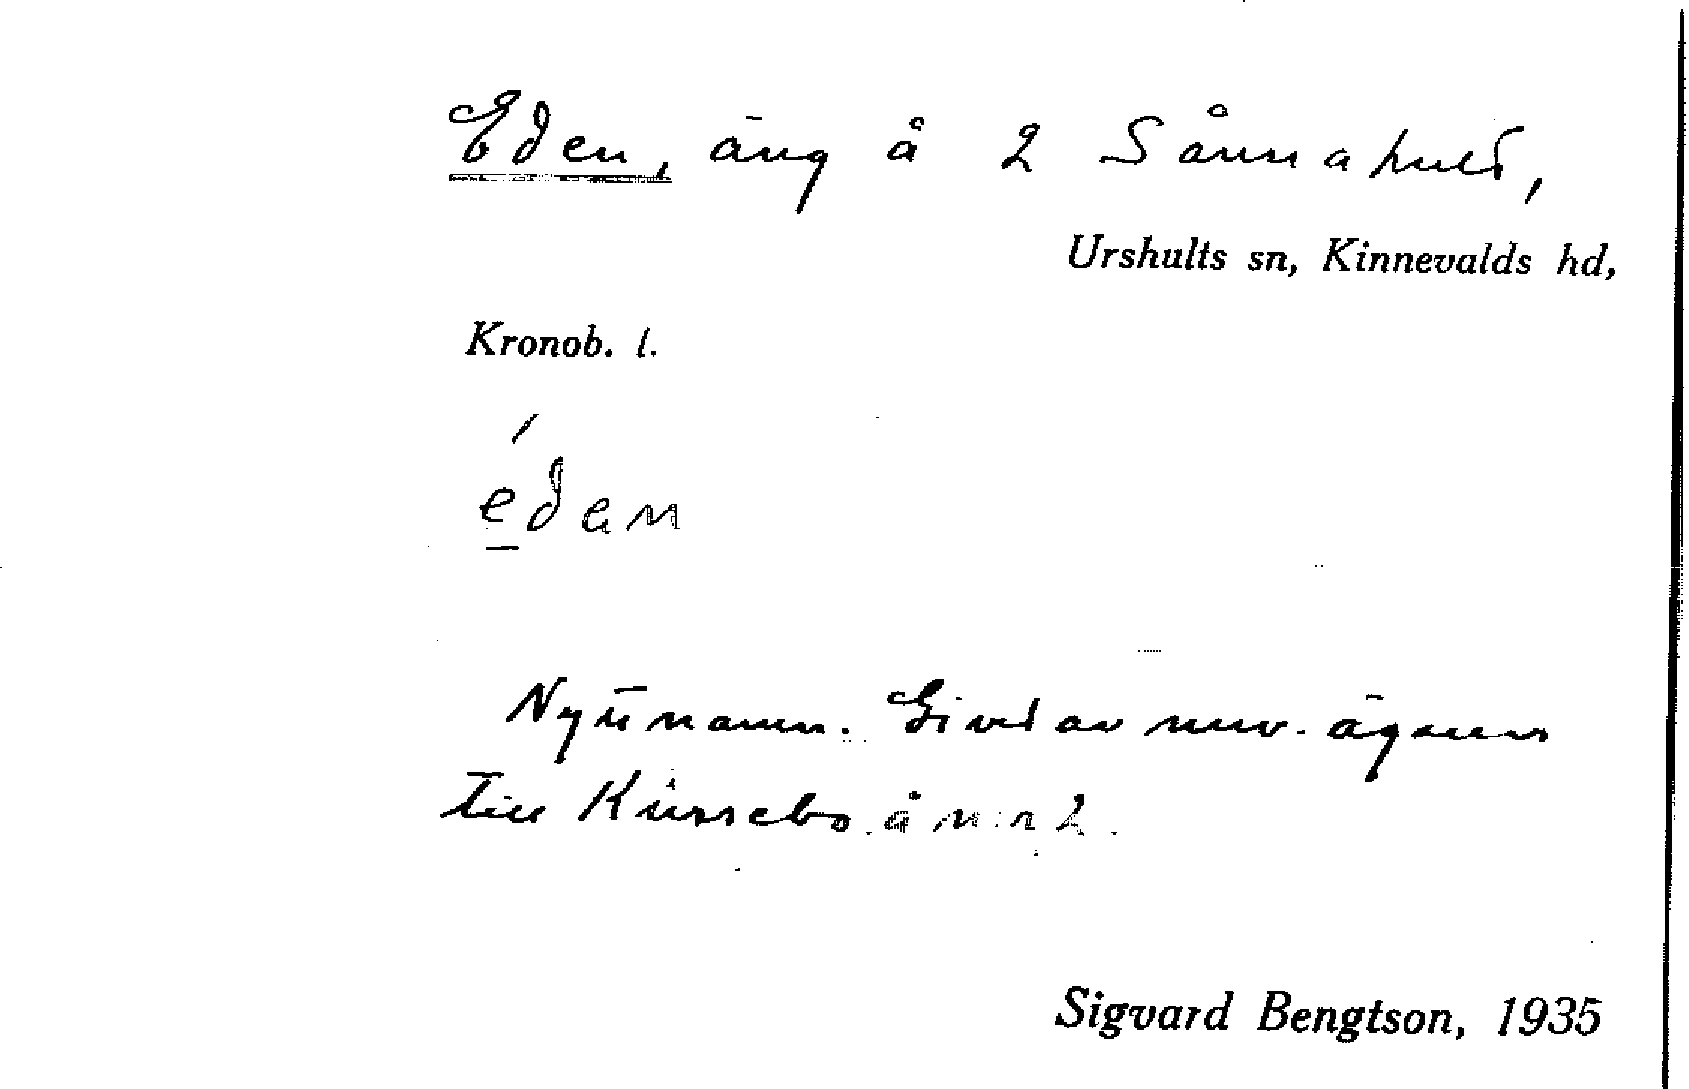 Eden, äng å 2 Sånnahult,
Urshults sn, Kinnevalds hd,
Kronob. l.
éden
Nytt namn. Givet av nuv. ägaren
till Kusebo å nr 2.
Sigvard Bengtson, 1935